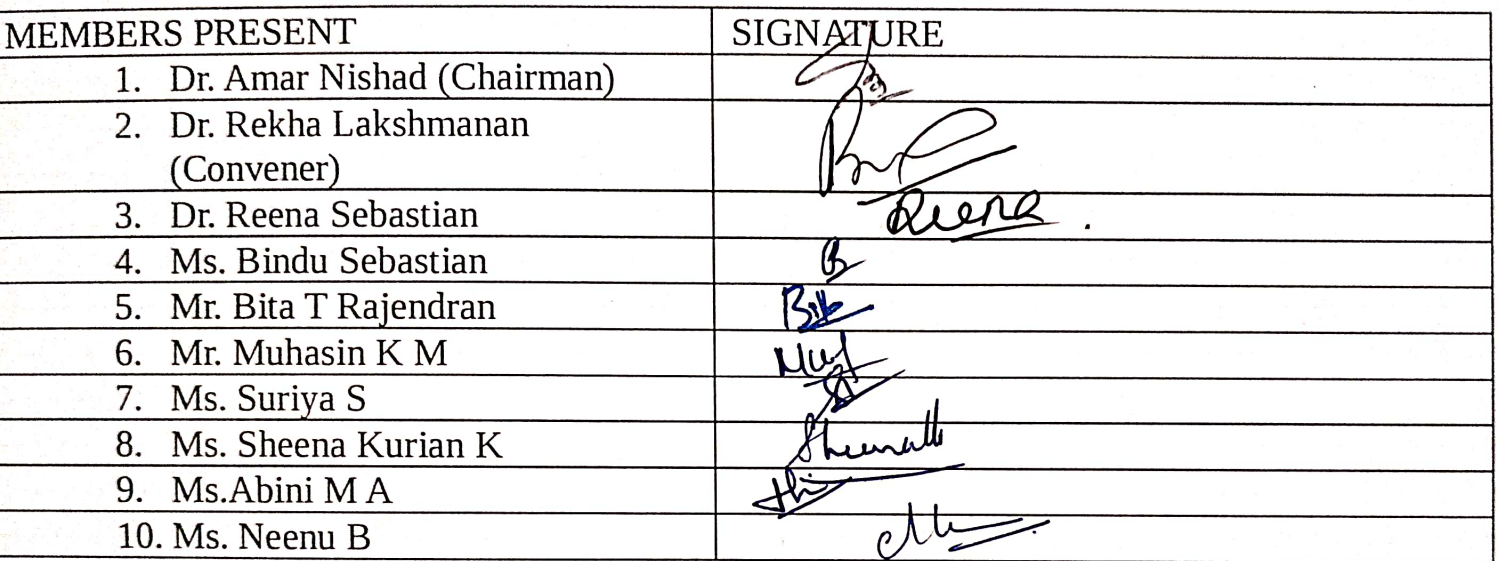 MEMBERS PRESENT SIGNATURE
1. Dr. Amar Nishad (Chairman)
2. Dr. Rekha Lakshmanan
(Convener)
3. Dr. Reena Sebastian Reena
4. Ms. Bindu Sebastian B
5. Mr. Bita T Rajendran
6. Mr. Muhasin K M
7. Ms. Suriya S
8. Ms. Sheena Kurian K
9. Ms.Abini M A
10. Ms. Neenu B